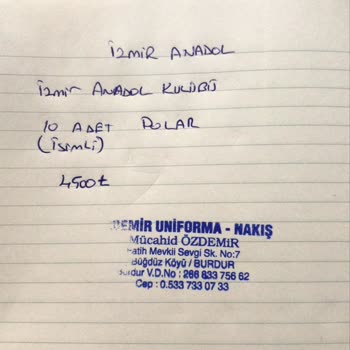 İZMİR ANADOL
İzmir ANADOL KULÜBÜ
10 ADET POLAR
(İSİMLİ)
4500₺
DEMİR UNİFORMA - NAKIŞ
Mücahid ÖZDEMİR
Fatih Mevkii Sevgi Sk. No:7
Büğdüz Köyü / BURDUR
Burdur V.D.No : 266 833 756 62
Cep : 0.533 733 07 33